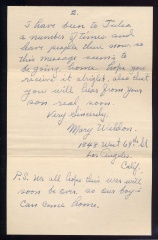 2.
I have been to Tulsa
a number of times and
have people there now so
this message seems to
be going home. hope you
receive it alright, also that
you will hear from your
son real soon.
Very Sincerely,
Mary Weldon.
1848 West 69th St
Los Angeles.
Calif.
P.S. We all hope this war will
soon be over, so our boys
can come home.